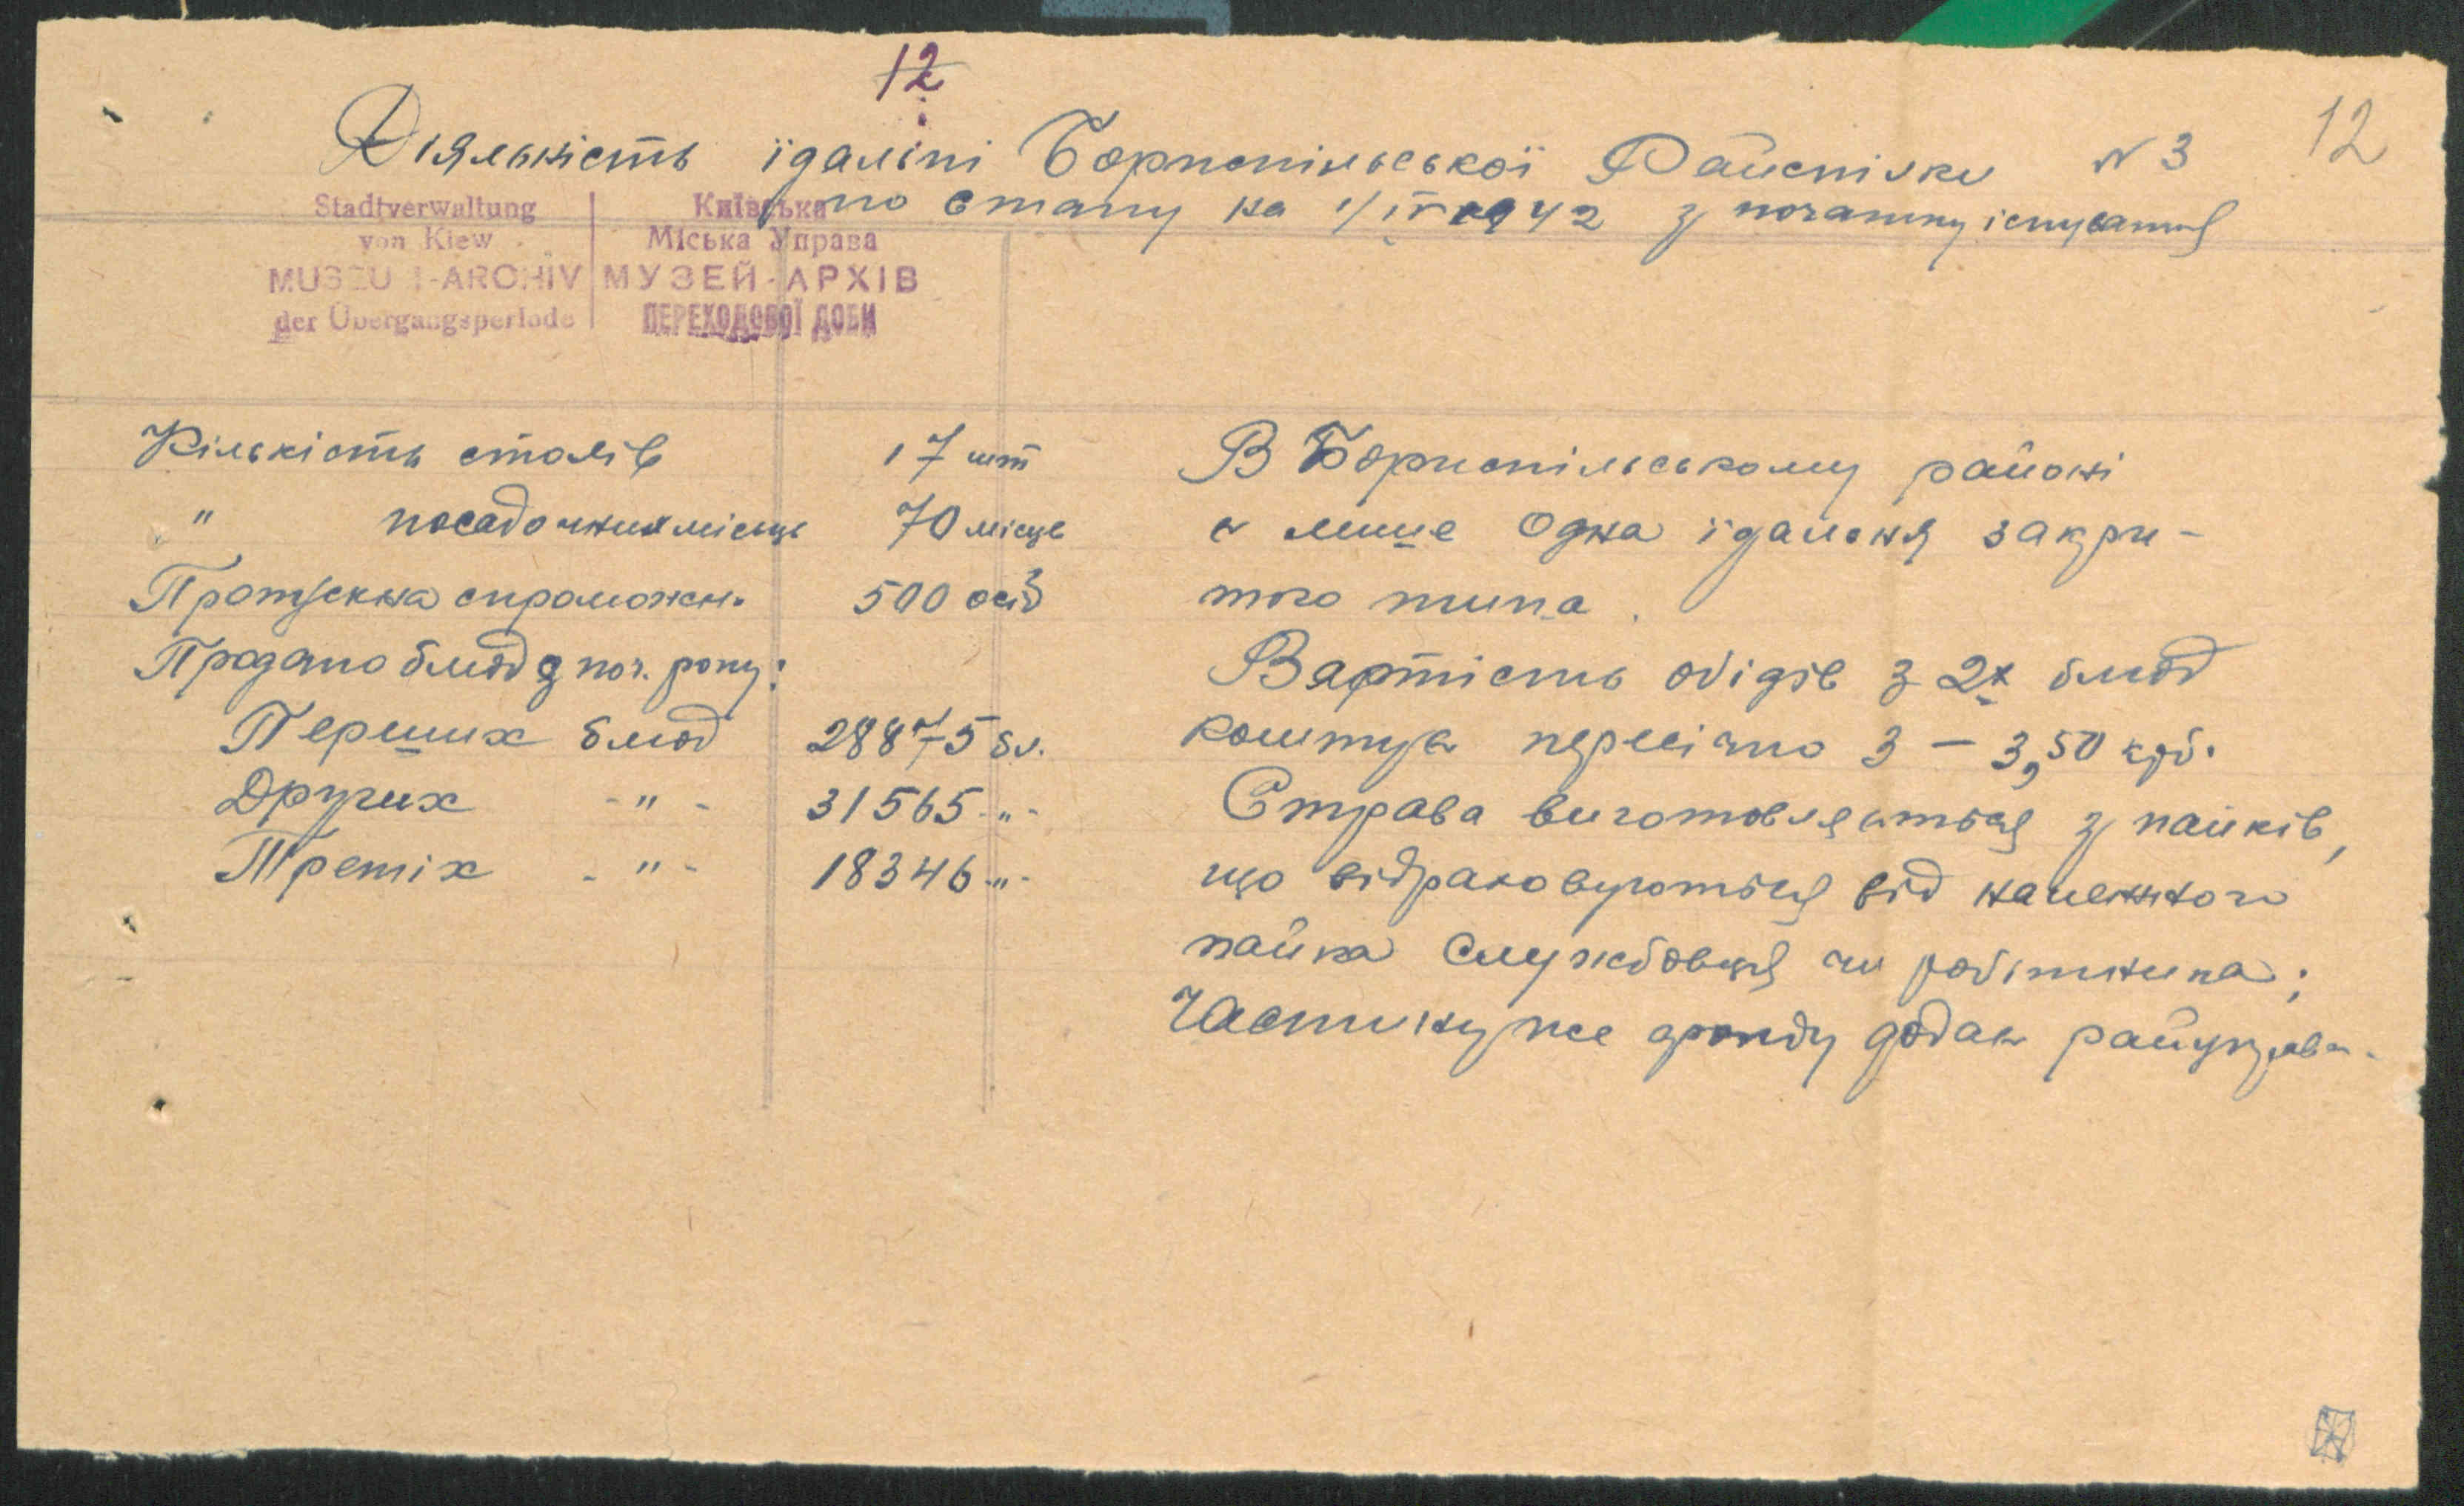 12
12
Діяльність їдальні Бориспільської Райспілки № 3
по стану на 1/IV 1942 з початку існування
Stadtverwaltung
von Kiew
MUSEUM-ARCHIV
der Übergangsperiode
Київська
Міська Управа
МУЗЕЙ-АРХІВ
ПЕРЕХОДОВОЇ ДОБИ
Кількість столів 17 шт
" посадочних місць 70 місць
Пропускна спроможн. 500 осіб
Продано блюд з поч. року:
Перших блюд 28875 бл.
Других -"- 31565 -"-
Третіх -"- 18346 -"-
В Бориспільському районі
є лише одна їдальня закри-
того типа.
Вартість обідів з 2х блюд
коштує пересічно 3 – 3,50 крб.
Страва виготовляється з пайків,
що відраховуються від належного
пайка службовця чи робітника;
Частину же фонду додає райуправа.